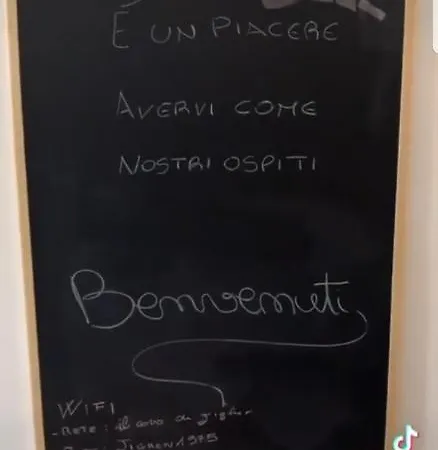 È UN PIACERE
AVERVI COME
NOSTRI OSPITI
Benvenuti
WIFI
- RETE: il